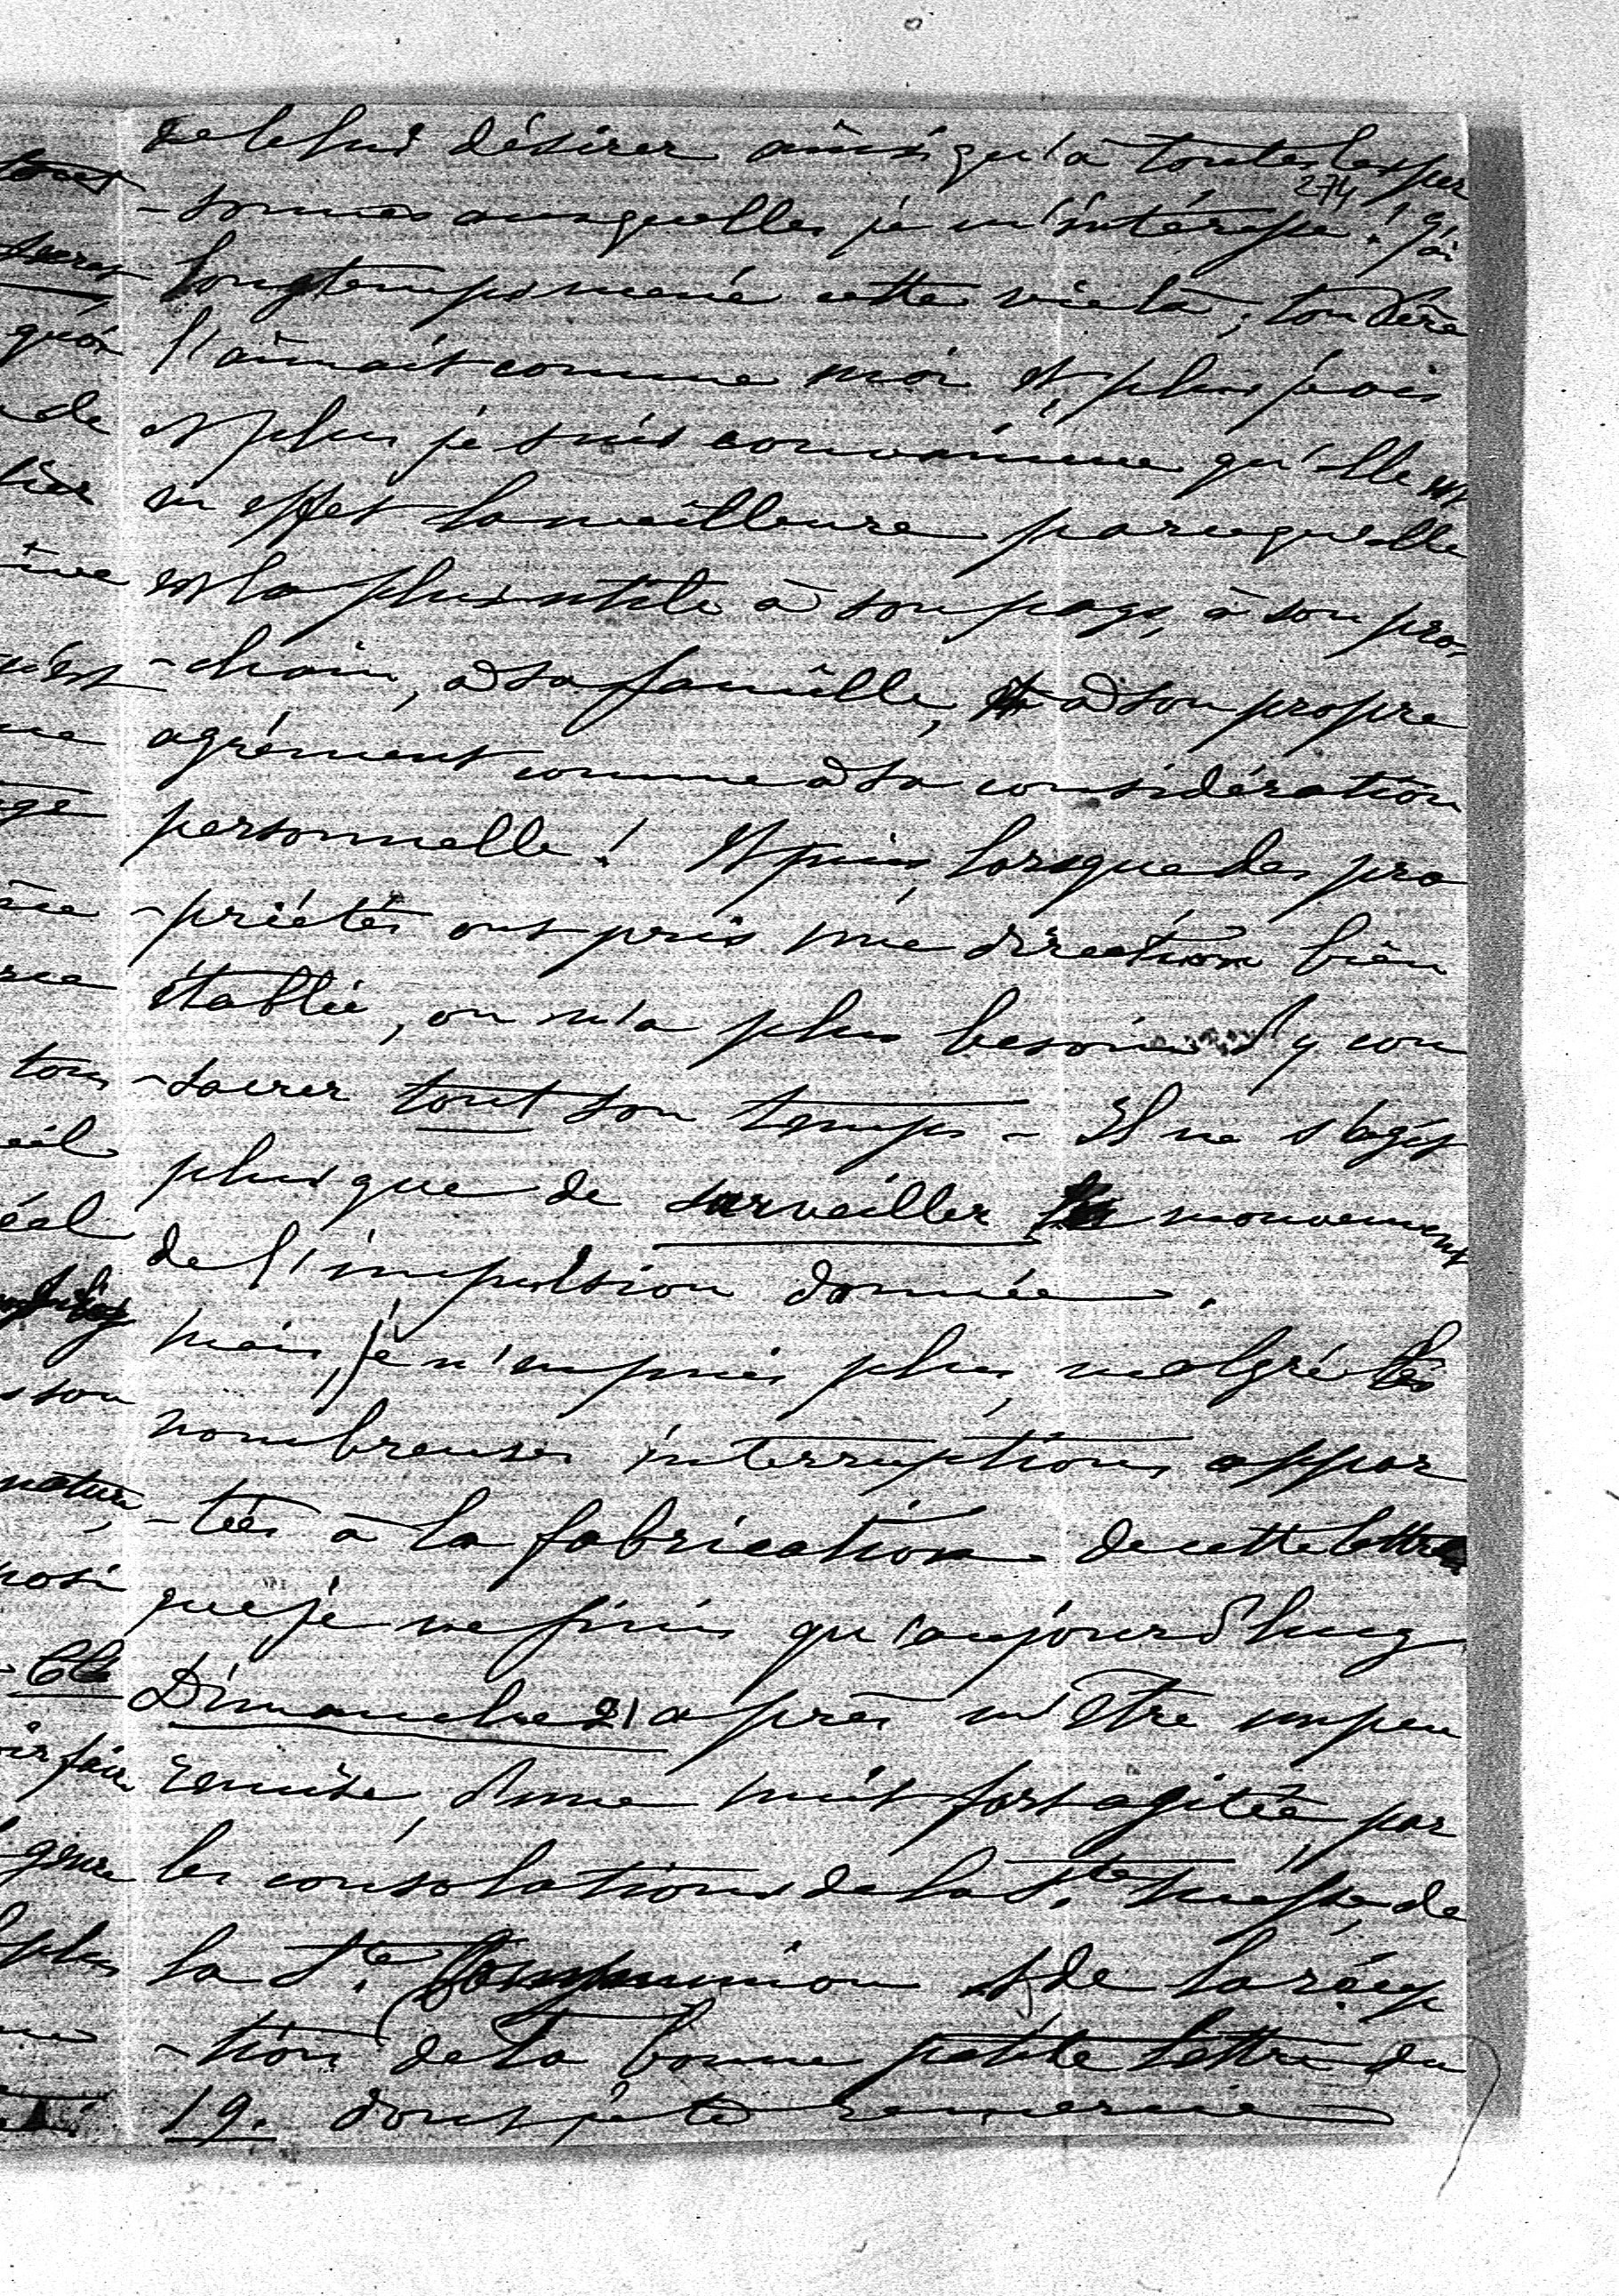 de te lui désirer ainsi qu'à toutes les per
274
-sonnes auxquelles je m'intéresse! J'ai
longtemps mené cette vie là; ton Père
l'aimait comme moi et, plus je vis
et plus je suis convaincue qu'elle est
en effet la meilleure parcequ'elle
est la plus utile à son pays, à son pro-
-chain, à sa famille, et à son propre
agrément comme à sa considération
personnelle! Et puis, lorsque des pro
-priétés ont pris une direction bien
établie, on n'a plus besoin d'y con
-sacrer tout son temps - Il ne s'agit
plus que de surveiller le mouvement
de l'impulsion donnée.
Mais, je n'en puis plus, malgré les
nombreuses interruptions appor
-tées à la fabrication de cette lettre
que je ne finis qu'aujourd'huy
Dimanche 21 après m'être un peu
remise, d'une nuit fort agitée, par
les consolations de la Ste Messe, de
la Ste Communion et de la récep
-tion de ta bonne petite lettre du
19. dont je te remercie